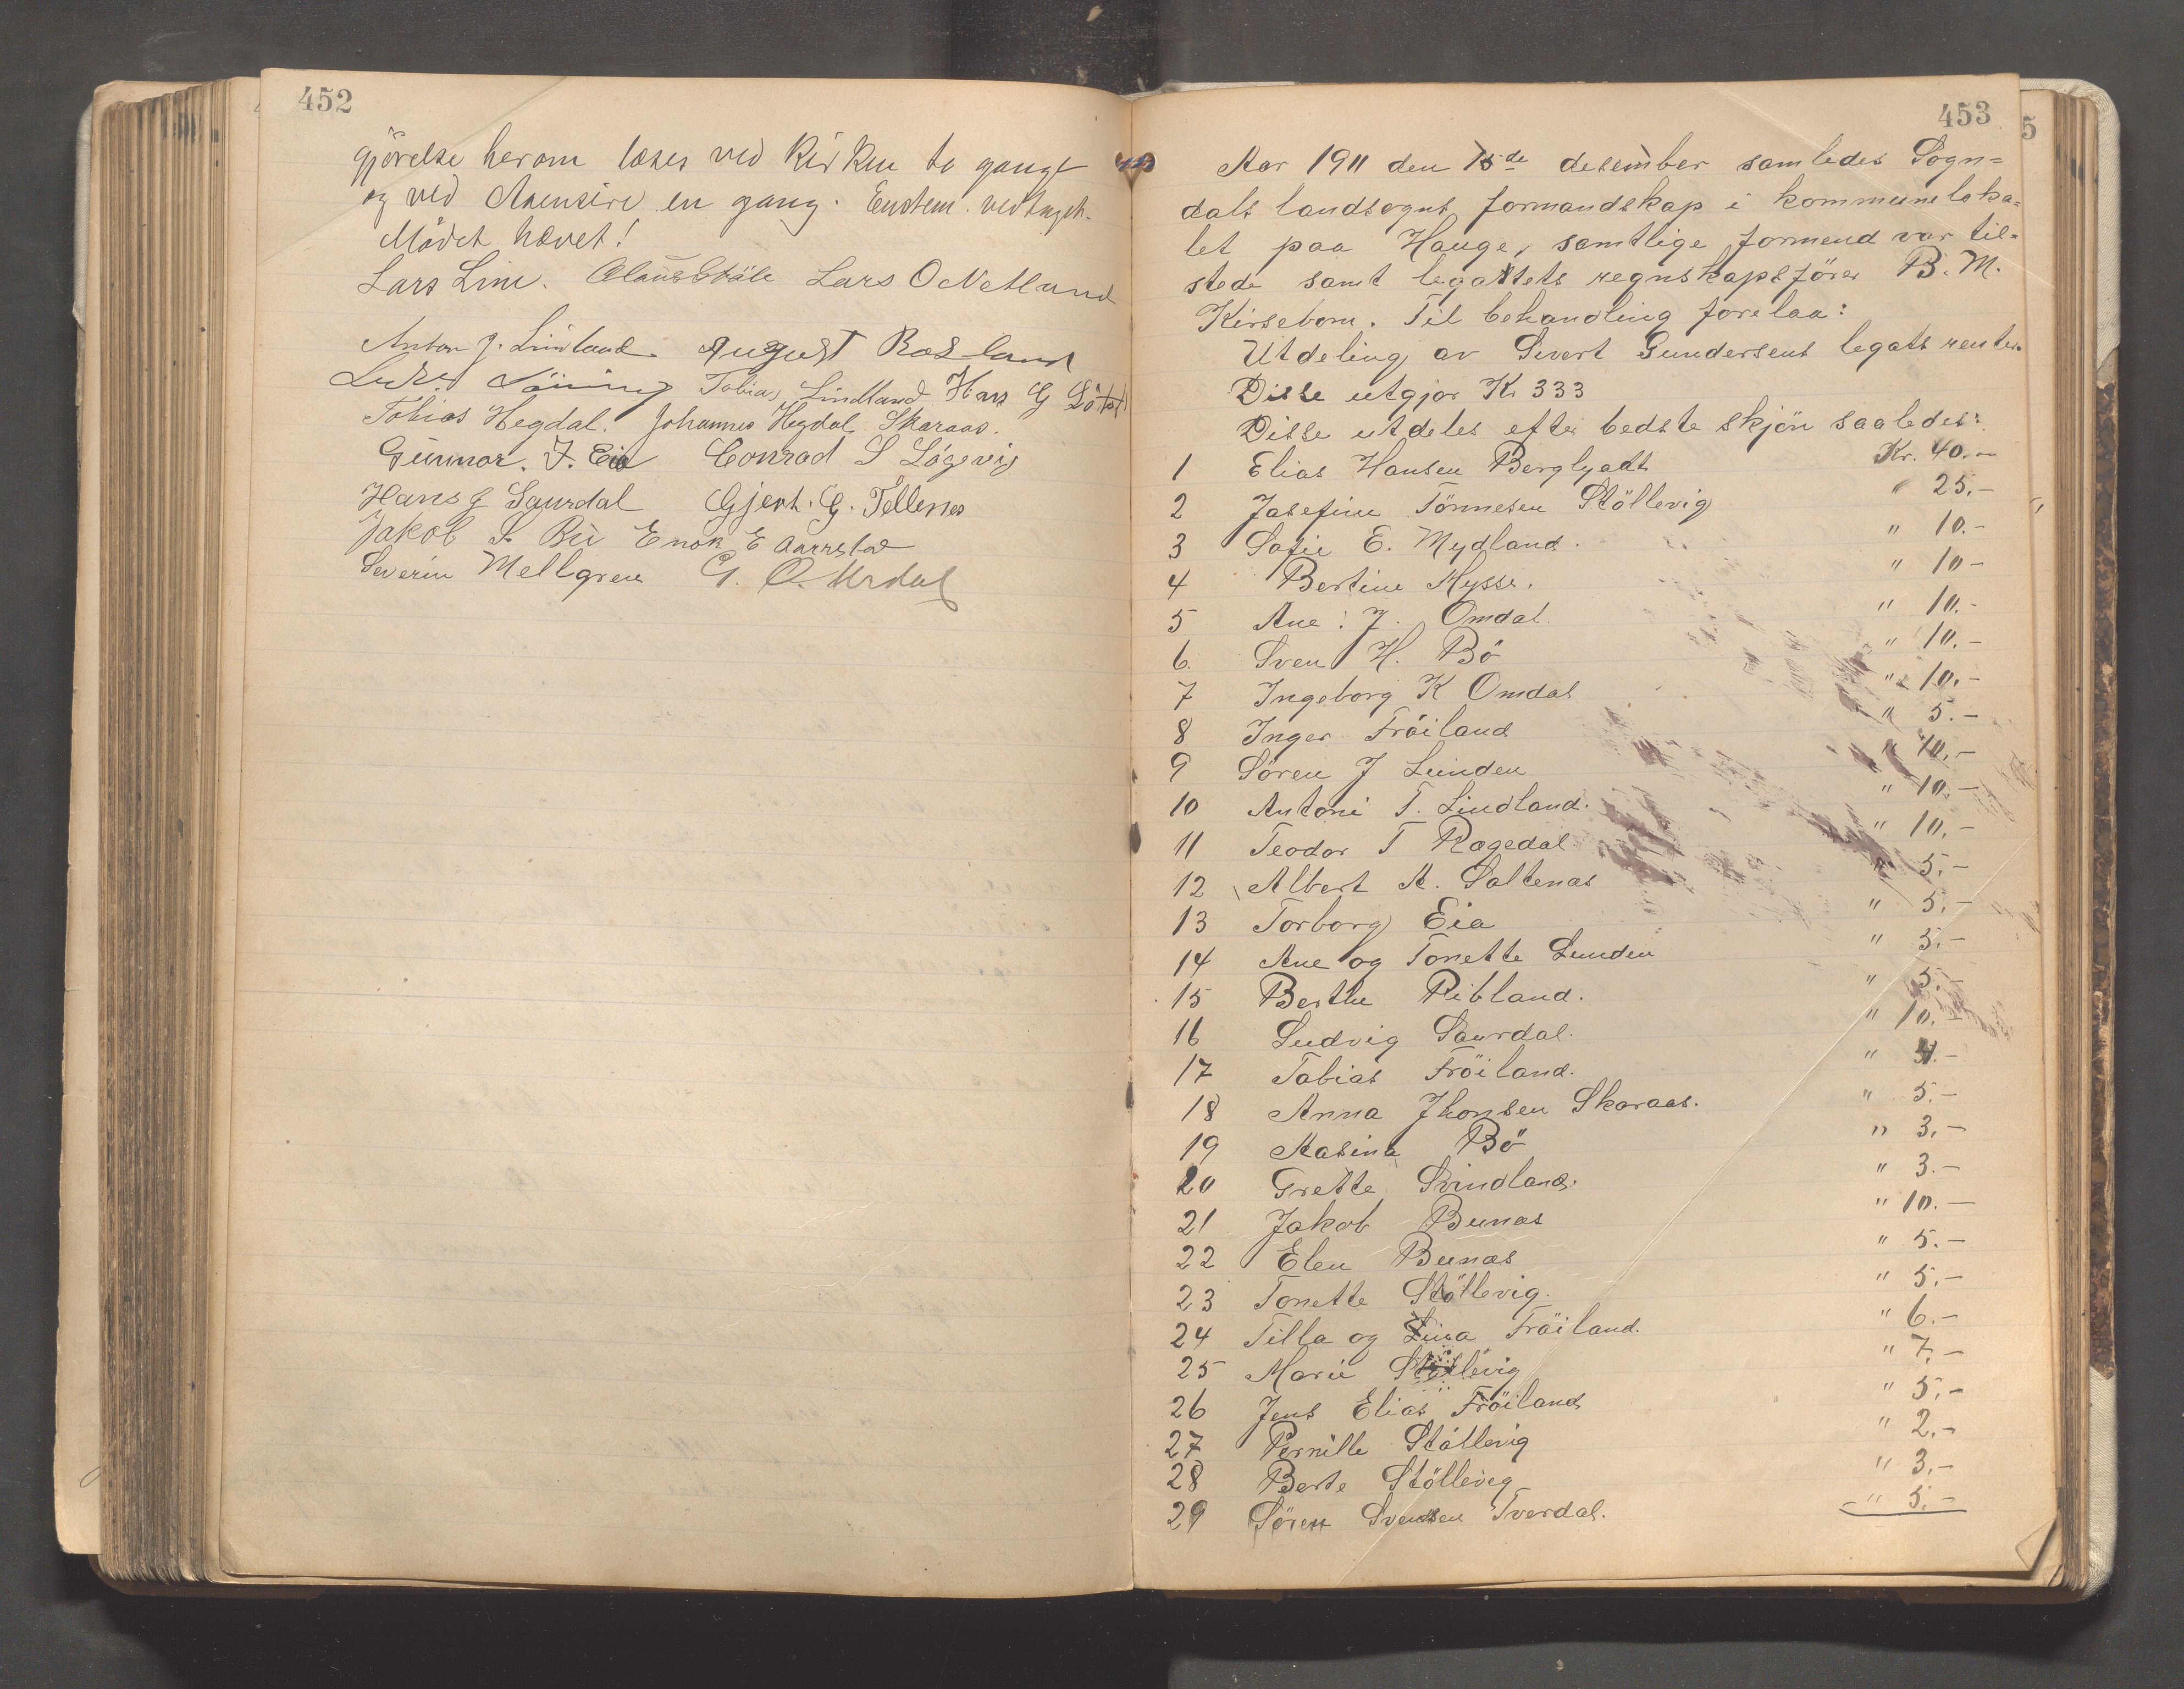 452
gjørelse herom læses ved Kirken to gange
og ved Aaensire en gang. Enstem. vedtaget.
Mödet hævet!
Lars Lim. Claus Ståle Lars O Netland
Anton J. Lindland. August Rosland
Tobias Lindland Hans G
Tobias Hegdal. Johannes Hegdal Skaraas.
Gunnar. J. Eia Conrad S Lögevig
Hans J Saurdal Gjert. G. Tellenes
Jakob S. Bu Enok E Aarrstad
Severin Mellgren G. O. Urdal
453
Aar 1911 den 15de desember samledes Sogn=
dals landsogns formandskap i kommuneloka=
let paa Hauge, samtlige formend var til=
stede samt legattets regnskapsförer B. M.
Kirsebom. Til behandling forelaa:
Utdeling av Sivert Gundersens legats renter.
Disse utgjør Kr 333
Disse utdeles efter bedste skjön saaledes:
1 Elias Hansen Berglyadt Kr. 40.-
2 Josefine Tönnesen Stöllevig " 25.-
3 Sofie E. Mydland. " 10.-
4 Bertine Mysse. " 10-
5 Ane: J. Omdal. " 10.-
6 Sven H. Bö " 10.-
7 Ingeborg K Omdal " 10.-
8 Inger Fröiland " 5.-
9 Sören J Lunden " 10.-
10 Antoni T. Lindland. " 10.-
11 Teodor T Rægedal. " 10.-
12 Albert A. Saltenas " 5.-
13 Torborg Eia " 5.-
14 Ane og Tonette Lunden " 5.-
15 Berthe Ribland. " 5.-
16 Ludvig Saurdal. " 10.-
17 Tobias Fröiland. " 4.-
18 Anna Jhonsen Skaraas. " 5.-
19 Aasina Bö " 3.-
20 Grette Svindland. " 3.-
21 Jakob Bunæs " 10.-
22 Elen Bunæs " 5.-
23 Tonette Stöllevig. " 5.-
24 Tilla og Lina Fröiland. " 6.-
25 Marie Stöllevig " 7.-
26 Jens Elias Fröiland " 5.-
27 Pernille Stöllevig " 2.-
28 Berte Stöllevig " 3.-
29 Sören Svendsen Tverdal. " 5.-